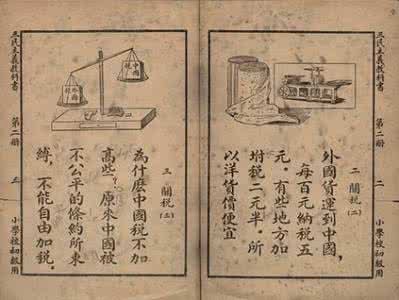 三民主義教科書 第二册 二 小學校初級用
二 關稅
外國貨運到中國，
每百元納稅五
元。有些地方加
坿稅二元半。所
以洋貨價便宜
中國稅
外國稅
三 關稅(二)
為什麽中國稅不加
高些？原來中國被
不公平的條約所束
縛，不能自由加稅。
三民主義教科書 第二册 三 小學校初級用